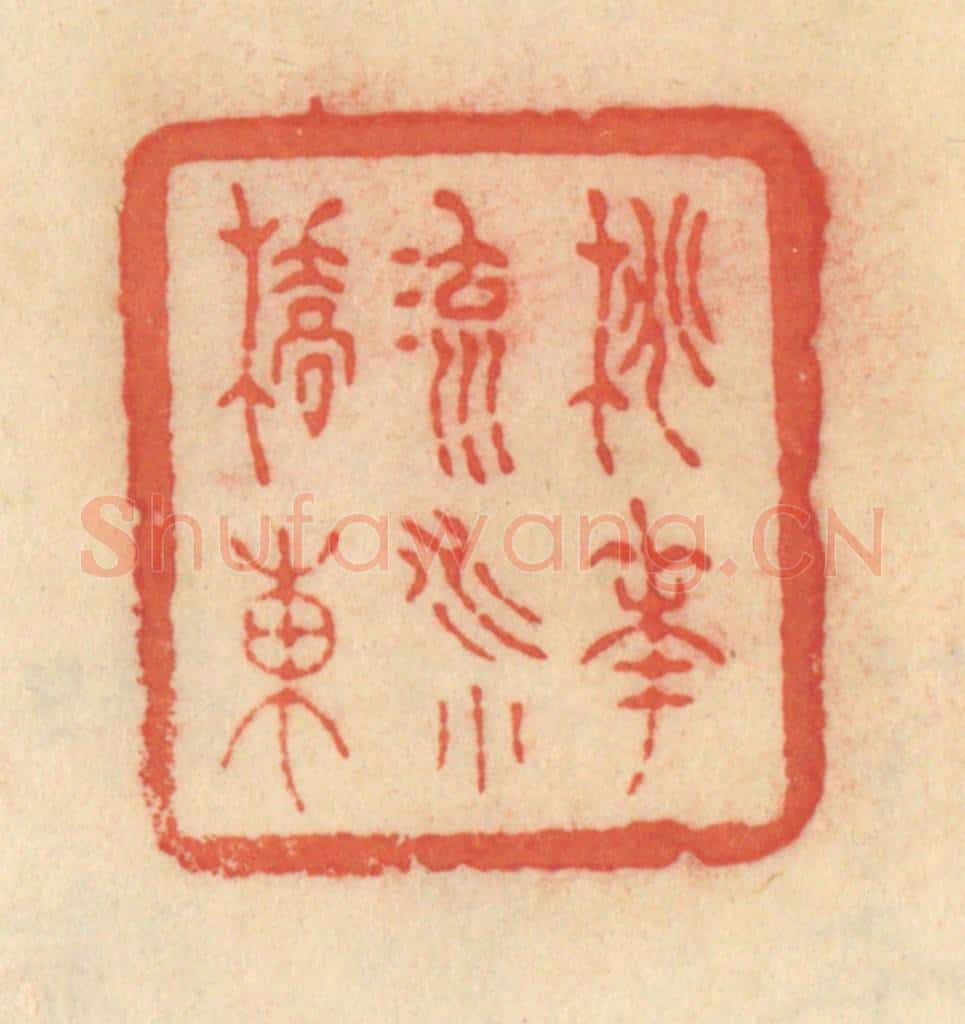 桃華
流水小
橋東
Shufawang.CN